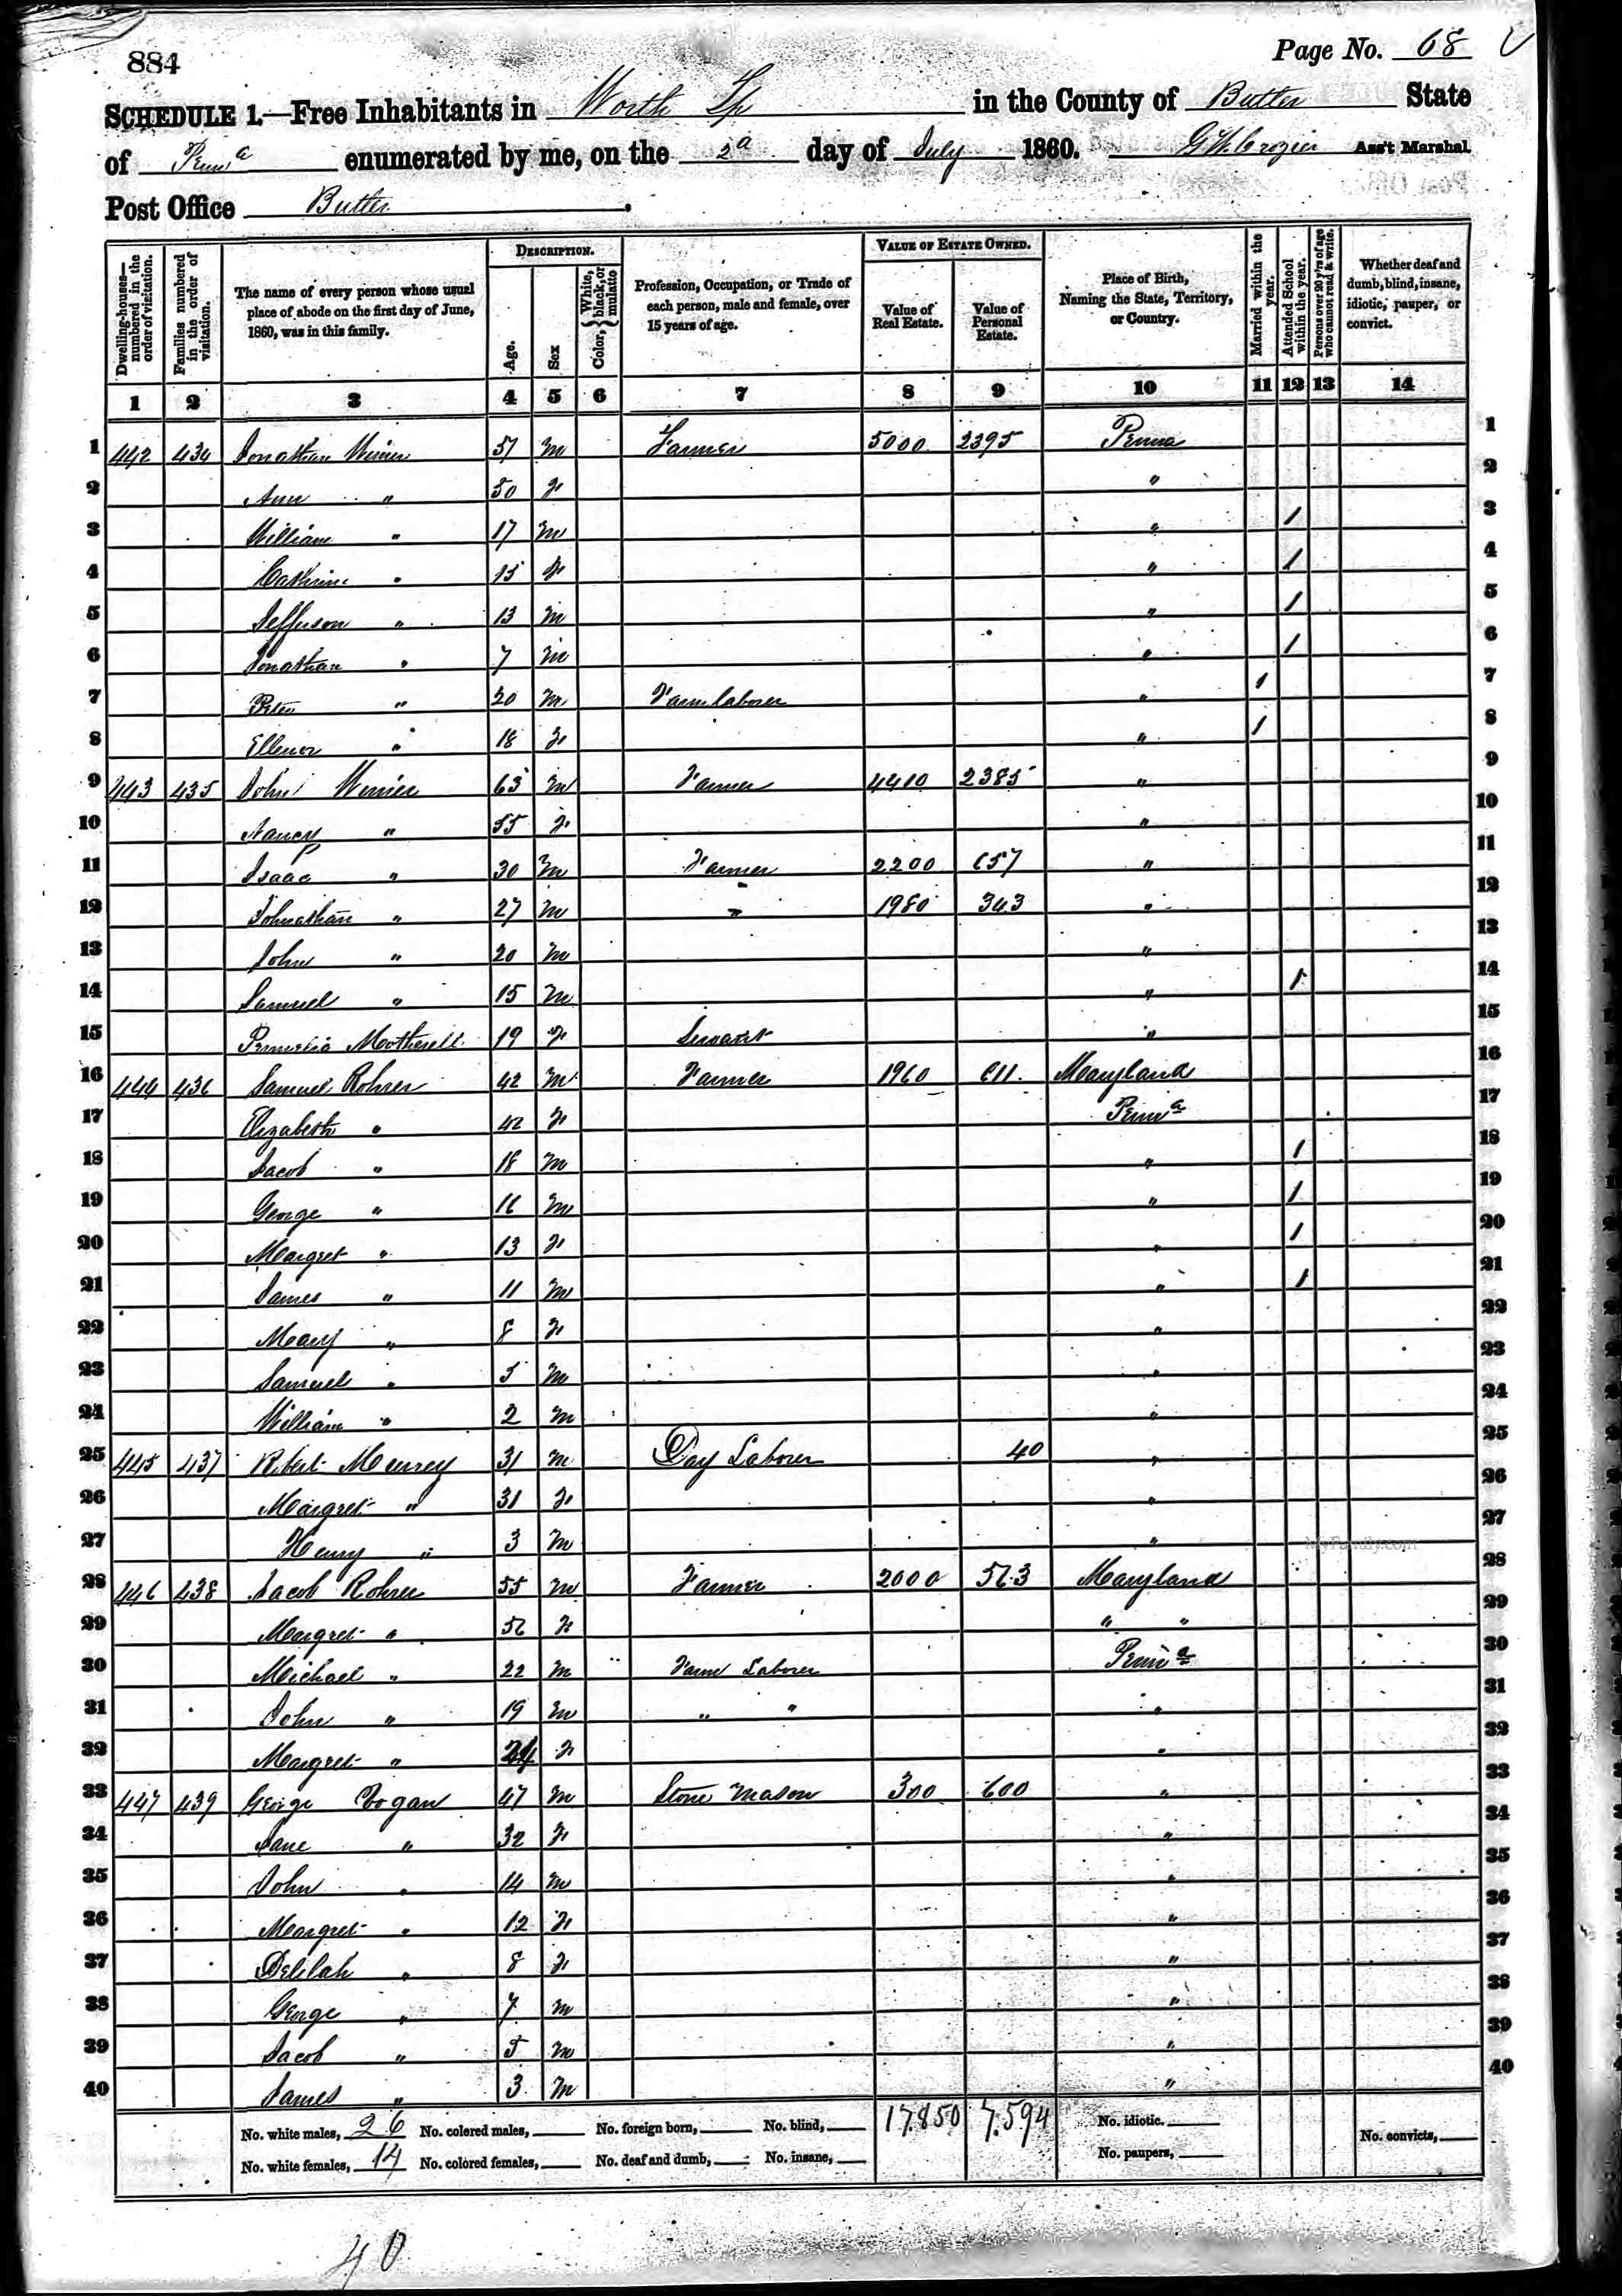 884
Page No. 68
SCHEDULE 1.—Free Inhabitants in Worth Tp in the County of Butler State
of Penna enumerated by me, on the 2d day of July 1860. G W Crozier Ass't Marshal.
Post Office Butler.
Dwelling-houses—numbered in the order of visitation.
Families numbered in the order of visitation.
The name of every person whose usual place of abode on the first day of June, 1860, was in this family.
DESCRIPTION.
Age.
Sex
Color, { White, black, or mulatto
Profession, Occupation, or Trade of each person, male and female, over 15 years of age.
VALUE OF ESTATE OWNED.
Value of Real Estate.
Value of Personal Estate.
Place of Birth, Naming the State, Territory, or Country.
Married within the year.
Attended School within the year.
Persons over 20 y'rs of age who cannot read & write.
Whether deaf and dumb, blind, insane, idiotic, pauper, or convict.
1 2 3 4 5 6 7 8 9 10 11 12 13 14
1 442 434 Jonathan 51 m Farmer 5000 2395 Penna 1
2 Ann " 50 f " 2
3 William " 17 m " 1 3
4 Cathrine " 15 f " 1 4
5 Jefferson " 13 m " 1 5
6 Jonathan " 7 m " 1 6
7 Peter " 20 m Farm Laborer " 1 7
8 Ellenor " 18 f " 1 8
9 443 435 John 63 m Farmer 4410 2385 " 9
10 Nancy " 55 f " 10
11 Isaac " 30 m Farmer 2200 657 " 11
12 Johnathan " 27 m " 1980 343 " 12
13 John " 20 m " 13
14 Samuel " 15 m " 1 14
15 Motherell 19 f Servant " 15
16 444 436 Samuel Rohrer 42 m Farmer 1960 611 Maryland 16
17 Elizabeth " 42 f Penna 17
18 Jacob " 18 m " 1 18
19 George " 16 m " 1 19
20 Margret " 13 f " 1 20
21 James " 11 m " 1 21
22 Mary " 8 f " 22
23 Samuel " 5 m " 23
24 William " 2 m " 24
25 445 437 Robert Murrey 31 m Day Laborer 40 " 25
26 Margret " 31 f " 26
27 Henry " 3 m " 27
28 446 438 Jacob Rohrer 55 m Farmer 2000 563 Maryland 28
29 Margret " 56 f " " 29
30 Michael " 22 m Farm Laborer Penna 30
31 John " 19 m " " " 31
32 Margret " 24 f " 32
33 447 439 George Vogan 47 m Stone Mason 300 600 " 33
34 Jane " 32 f " 34
35 John " 14 m " 35
36 Margret " 12 f " 36
37 Delilah " 8 f " 37
38 George " 7 m " 38
39 Jacob " 5 m " 39
40 James " 3 m " 40
No. white males, 26 No. colored males, No. foreign born, No. blind, 17850 7.594 No. idiotic. No. convicts,
No. white females, 14 No. colored females, No. deaf and dumb, No. insane, No. paupers,
40
MyFamily.com